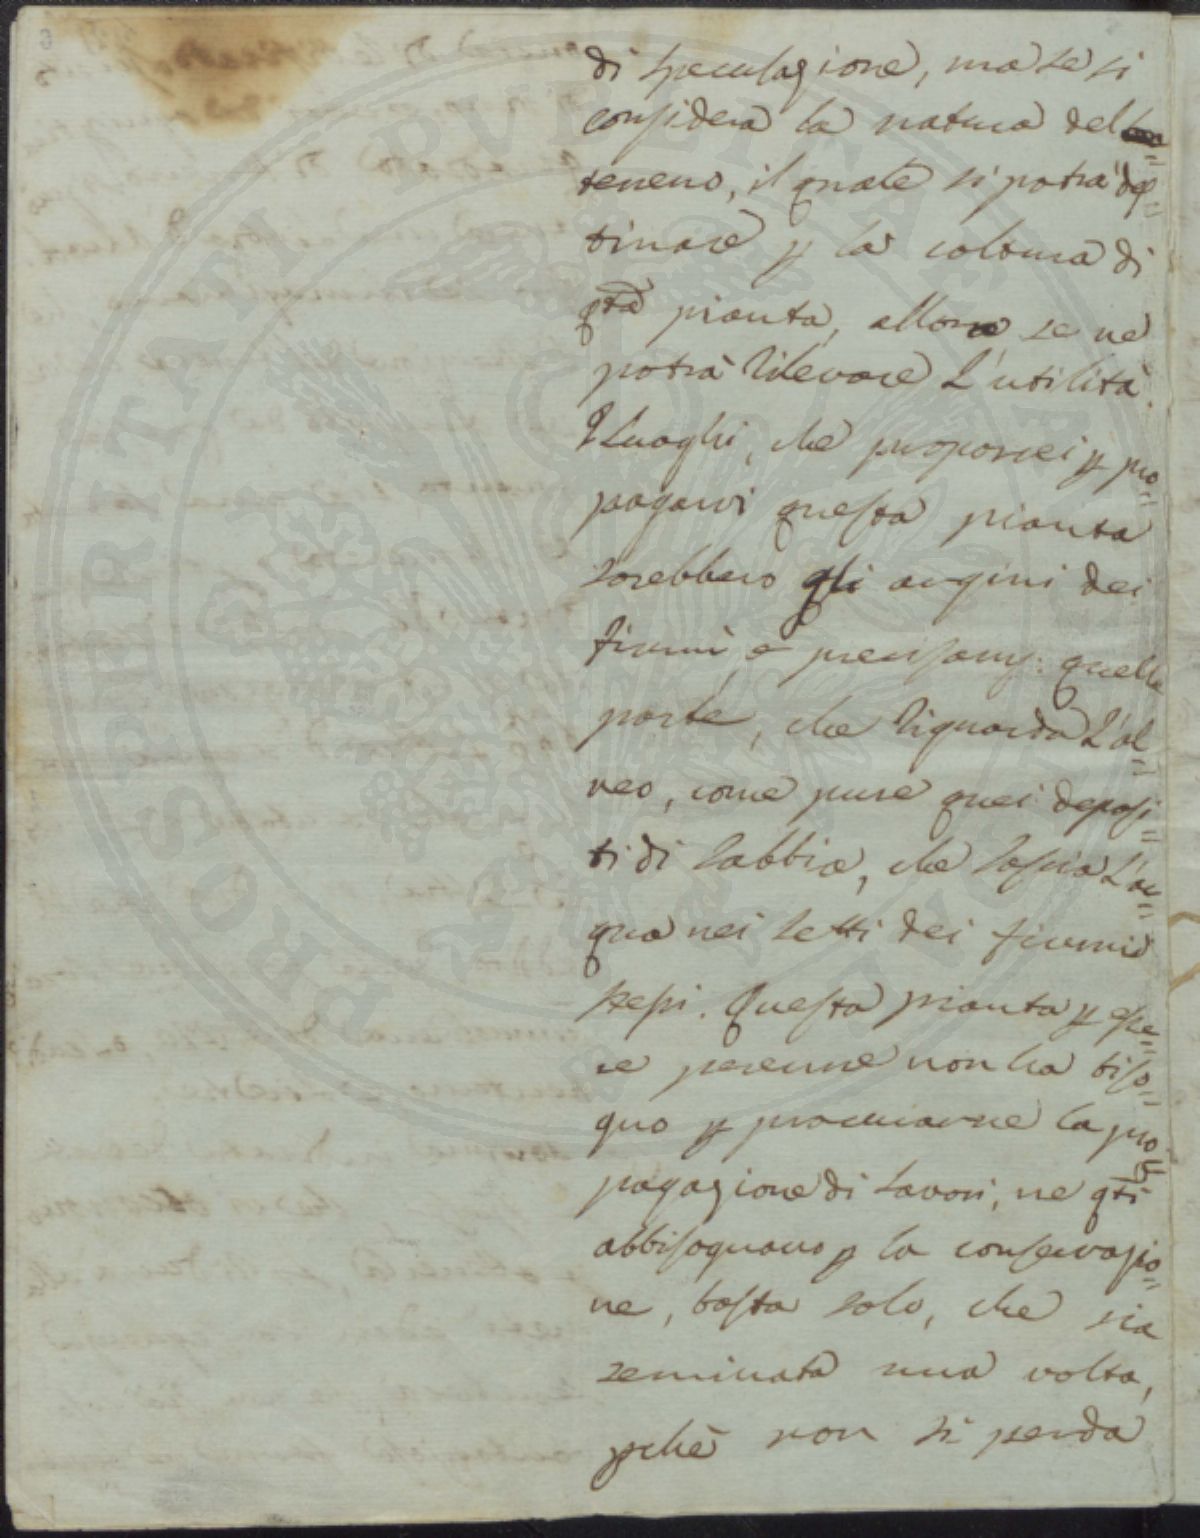 di speculazione, ma se si
considera la natura del
terreno, il quale si potrà des=
tinare p la coltura di
qta pianta, allora se ne
potrà rilevare l'utilità.
I Luoghi, che proporrei p pro=
pagarvi questa pianta
sarebbero gli argini dei
fiumi, e precisam: quella
parte, che riguarda l'al=
veo, come pure quei deposi=
ti di sabbia, che lascia l'ac=
qua nei letti dei fiumi
stessi. Questa pianta p esse=
re perenne non ha biso=
gno p procurarne la pro=
pagazione di lavori, ne qti
abbisognano p la conservazio=
ne, basta solo, che sia
seminata una volta,
pchè non si perda
PROSPERITATI PVBLICAE